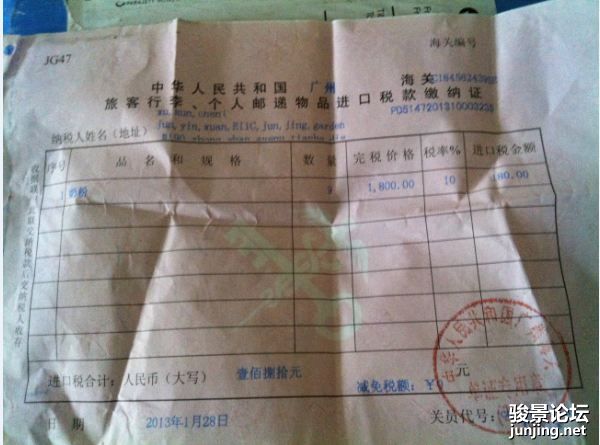 海关编号
JG47
中华人民共和国 广州 海关
旅客行李、个人邮递物品进口税款缴纳证
PD5147201310000235
纳税人姓名（地址）
xu, kun, chen
jun, yin, xuan, EliC, jun, jing, garden
序号 品名和规格 数量 完税价格 税率% 进口税金额
1 奶粉 9 1,800.00 10 180.00
进口税合计：人民币（大写） 壹佰捌拾元 减免税额：¥0 元
日期 2013年1月28日 关员代号：
骏景论坛
junjing.net